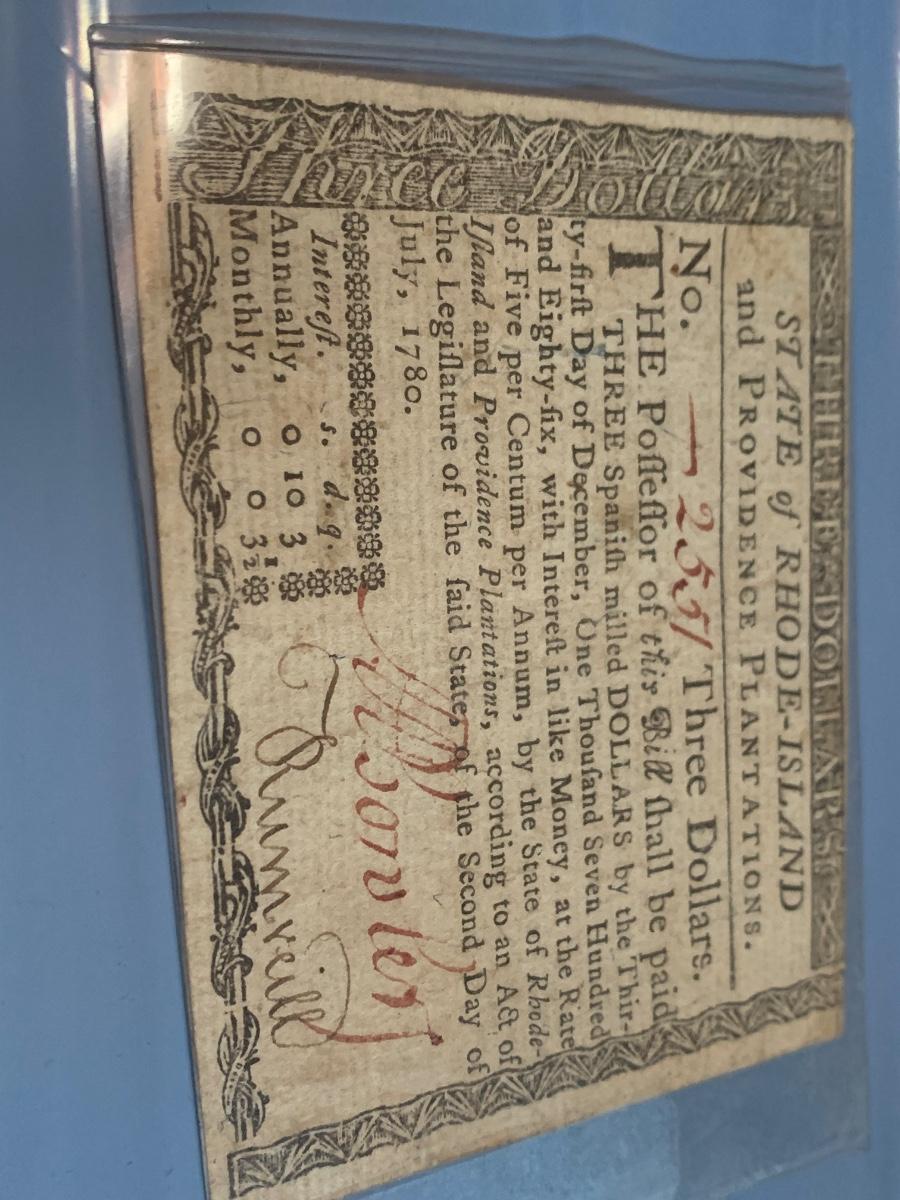 THREE DOLLARS
STATE of RHODE-ISLAND
and PROVIDENCE PLANTATIONS.
Three Dollars
No. 2551 Three Dollars.
THE Poſſeſſor of this Bill ſhall be paid
THREE Spaniſh milled DOLLARS by the Thir-
ty-firſt Day of December, One Thouſand Seven Hundred
and Eighty-ſix, with Intereſt in like Money, at the Rate
of Five per Centum per Annum, by the State of Rhode-
Iſland and Providence Plantations, according to an Act of
the Legiſlature of the ſaid State, of the Second Day of
July, 1780.
Intereſt. s. d. q.
Annually, 0 10 3
Monthly, 0 0 3½